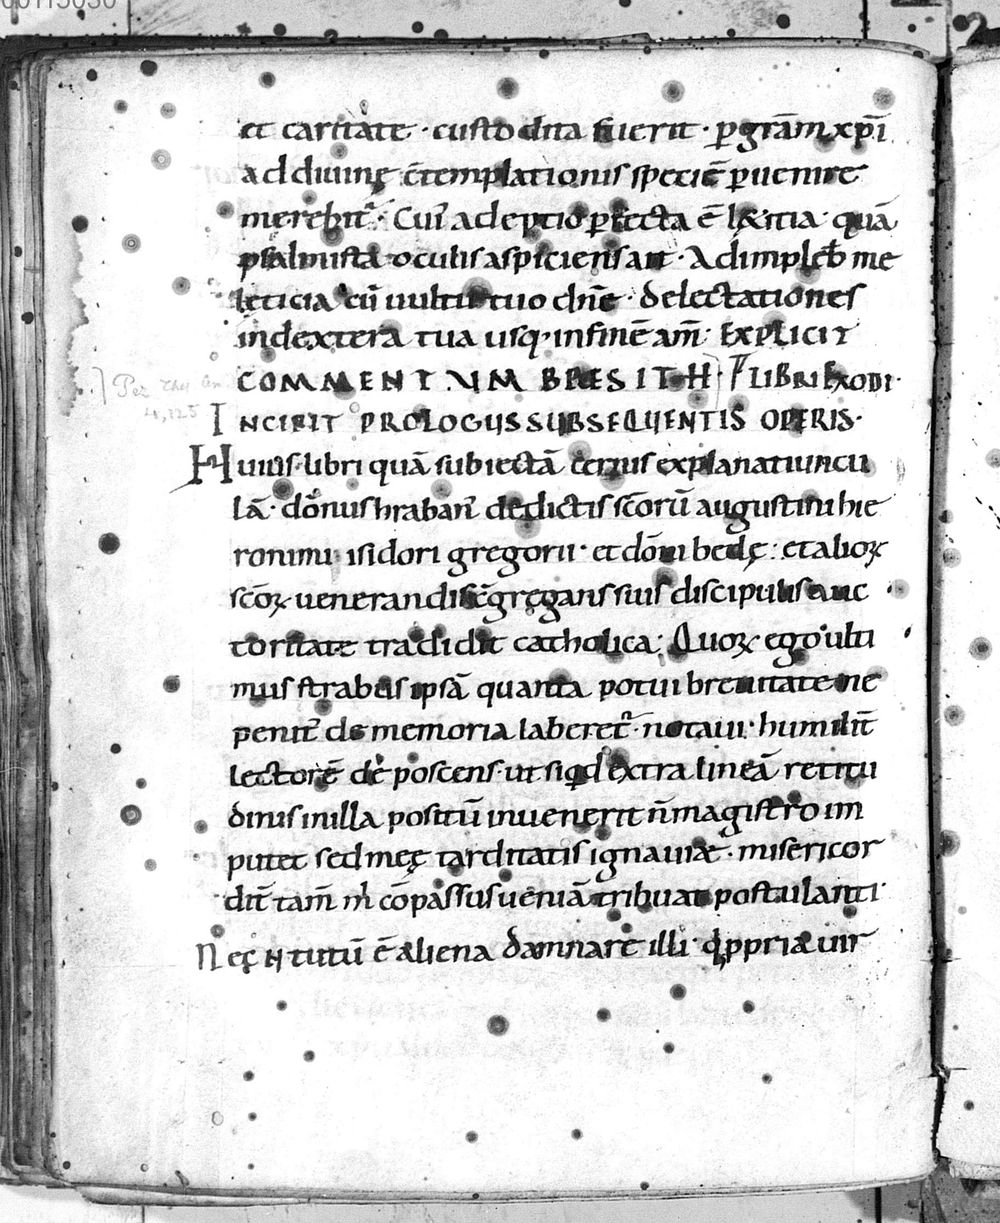 et caritate · custodita fuerit · p̱ grãm xp̃i
ad diuinę c̃templationis specíē p̱uenire
merebit᷑ · Cui᷒ adeptio p̱fecta ē l&itia · quã
psalmista oculis aspiciens ait · Adimplebˀ me
lęticia cũ uultu tuo dñe · delectationes
in dextera tua usq· in finē am̃· EXPLICIT
COMMENTUM BRESITH · LIBRI EXODI·
INCIPIT PROLOGUS SUBSEQUENTIS OPERIS·
Huius libri quã subiectã cernis explanatiuncu
lã · dõnus hraban᷒ de dictis sc̃orũ augustini hie
ronimi isidori gregorii · et dõni bedę : et alioꝝ
sc̃oꝝ uenerandis c̃gręgans suis discipulis auc
toritate tradidit catholica· Quoꝝ ego ulti
mus strabus ipsã quanta potui breuitate ne
penit᷒ de memoria laberet᷑ · notaui · humilit̃
lectorē dep̱oscens · ut siqd extra lineã rectitu
dinis in illa positũ inuenerit ñ magistro im
putet sed meę tarditatis ignauiæ · misericor
dit̃ tam̃ m̓ cõpassus ueniã tribuat postulanti·
Neq; N tutũ ē aliena damnare illi · q̓ ppria uir